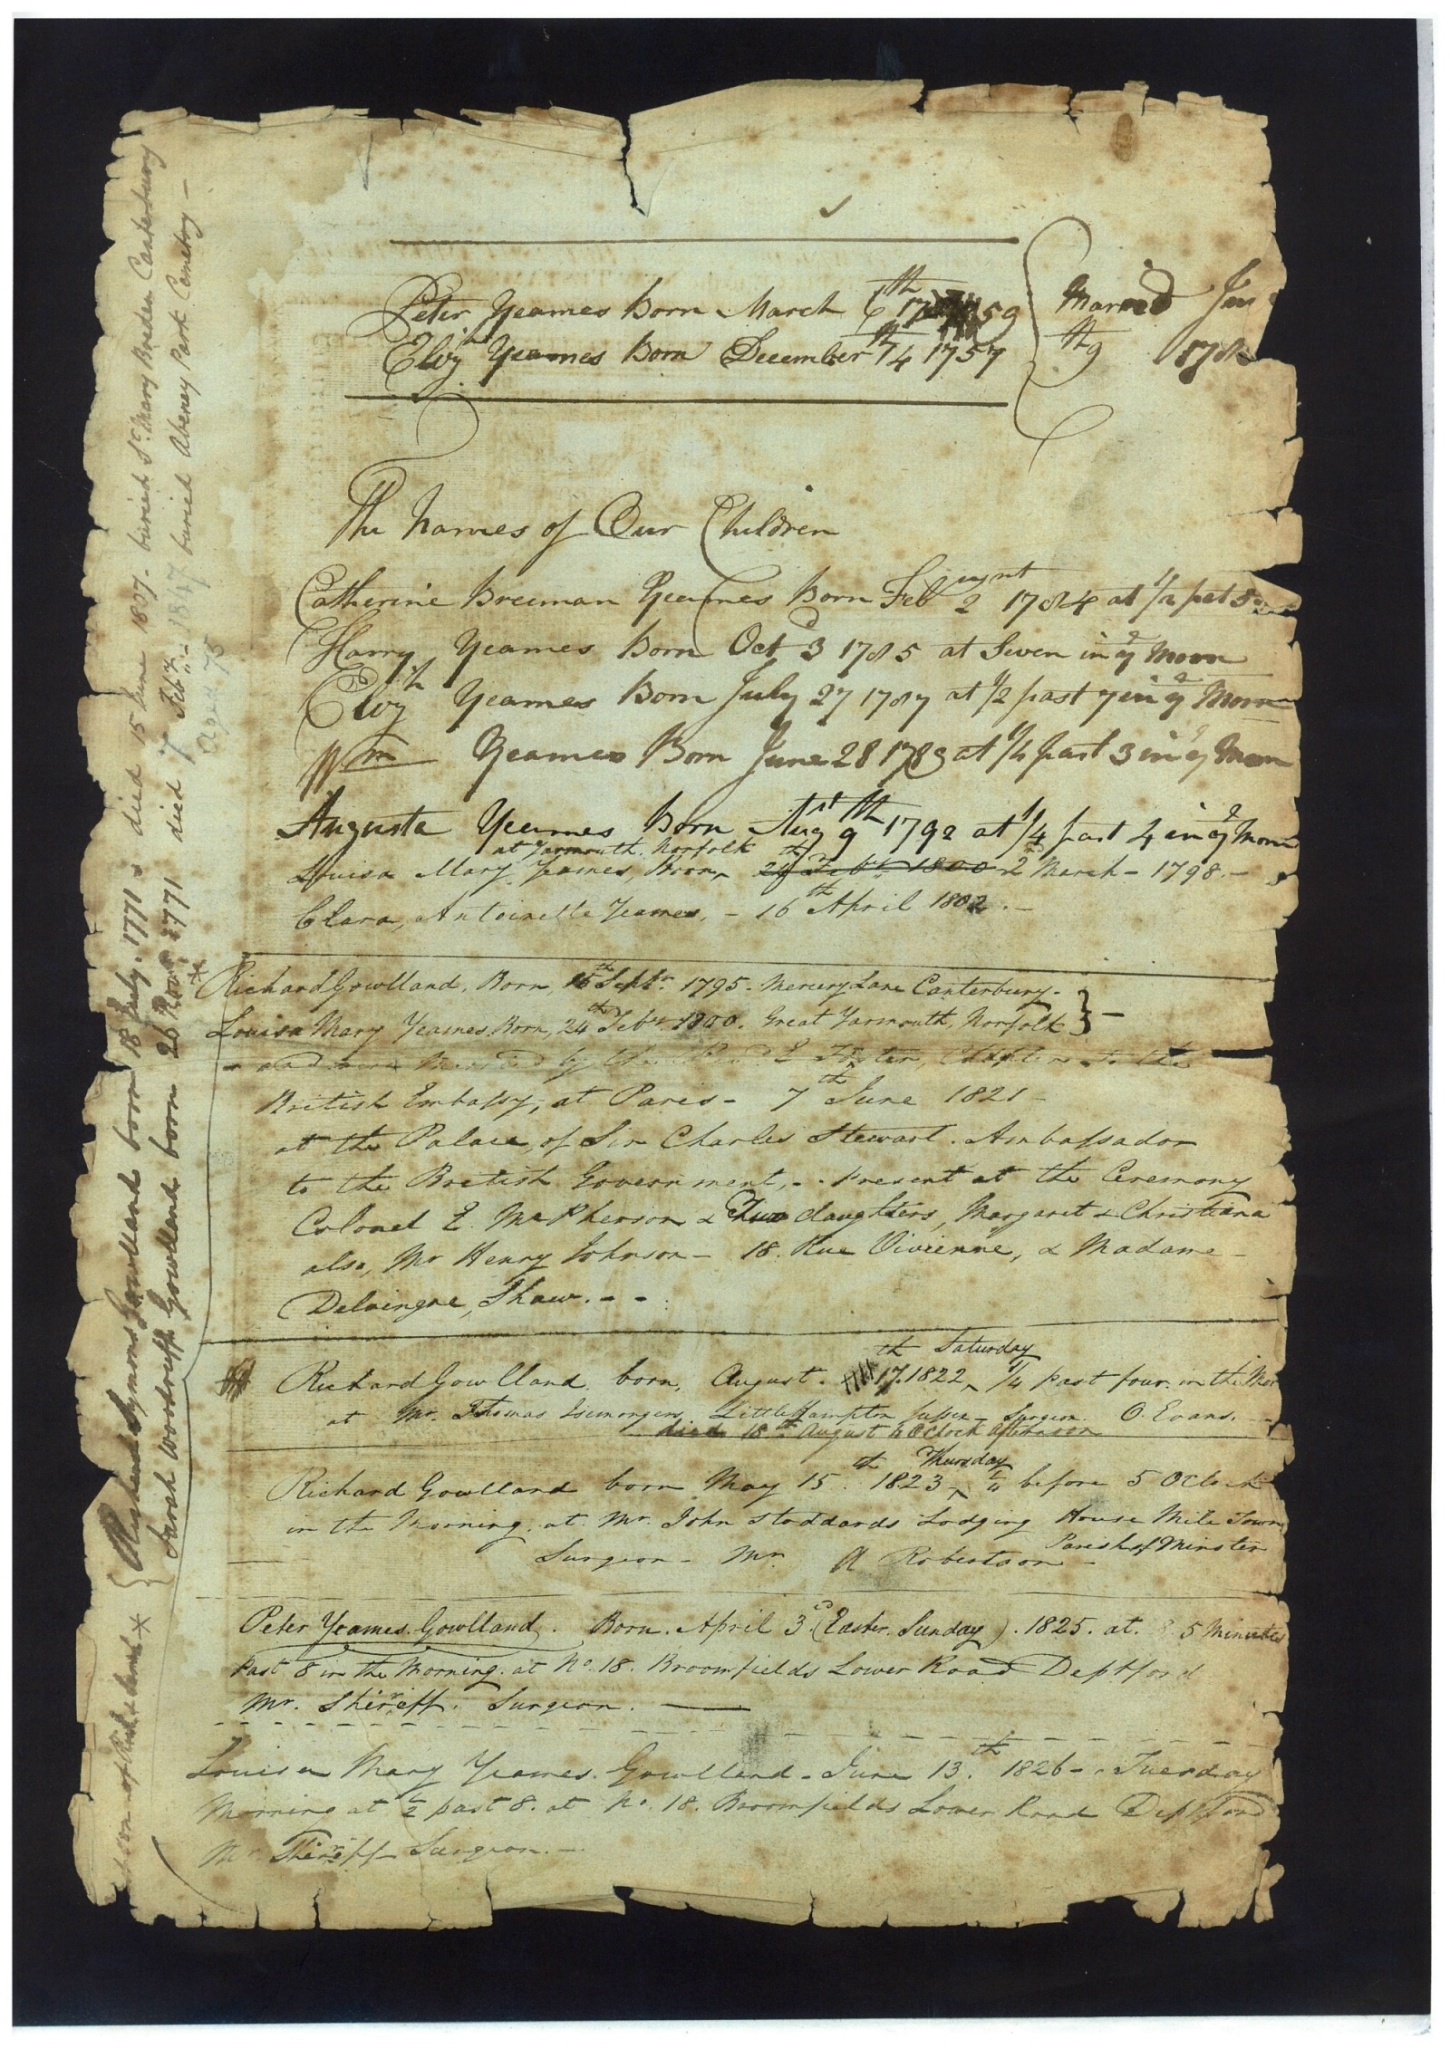 Peter Yeames Born March 6th 1759
Elizth Yeames Born December th4 1757
Married Jan
th9 178
The Names of Our Children
Catherine Breeman Yeames Born Feb 2 1784 at 1/2 past 5
Harry Yeames Born Octd 3 1785 at Seven in ye Morn
Elizth Yeames Born July 27 1787 at 1/2 past 7 in ye Morn
Wm Yeames Born June 28 1789 at 1/4 past 3 in ye Morn
Augusta Yeames Born Augst 9th 1792 at 1/4 past 4 in ye Morn
at Yarmouth. Norfolk
Louisa Mary Yeames, Born, 24th Feby. 1800 2d March - 1798. -
Clara, Antoinette Yeames, - 16th April 1802. -
Richard Gowlland, Born, 15th Septr. 1795. Mercury Lane Canterbury -
Louisa Mary Yeames, Born, 24th Feby 1800. Great Yarmouth, Norfolk } -
Married by the Revd. E Foster, Chaplin to the
British Embassy, at Paris - 7th June 1821 -
at the Palace, of Sir Charles Stewart. Ambassador
to the British Government, - . Present at the Ceremony
Colonel E. McPherson & Two daughters, Margaret & Christiana
also, Mr Henry Johnson - 18. Rue Vivienne, & Madame -
Delaingne, Shaw. - -
Richard Gowlland. born, August. 17th. 1822, Saturday 1/4 past four. in the Mor
at Mr. Thomas Isemongers. Little Hampton Sussex - Surgeon. O. Evans.
died 18th August 4 OClock afternoon
Richard Gowlland born May 15th. 1823, Thursday 1/4 before 5 OClock
in the Morning. at Mr. John Stoddards Lodging House Mile Town
Parish of Minster
Surgeon - Mr. A Robertson -
Peter Yeames. Gowlland. Born. April 3d. (Easter. Sunday). 1825. at. 5 Minutes
Past 8 in the Morning. at No. 18. Broomfields Lower Road Deptford
Mr. Shirreff. Surgeon.
Louisa Mary Yeames. Gowlland - June 13th. 1826 - Tuesday
Morning at 1/2 past 8. at No. 18. Broomfields Lower Road Deptford
Mr. Shirreff Surgeon. -
{ Richard Symons Gowlland born 18 July. 1771 & died 15 June 1837 - buried St. Mary Breden Canterbury
Sarah Woodruff Gowlland born 26 Novr. 1771 died 7 Feby. - 1847 buried Abeney Park Cemetry -
Aged 75